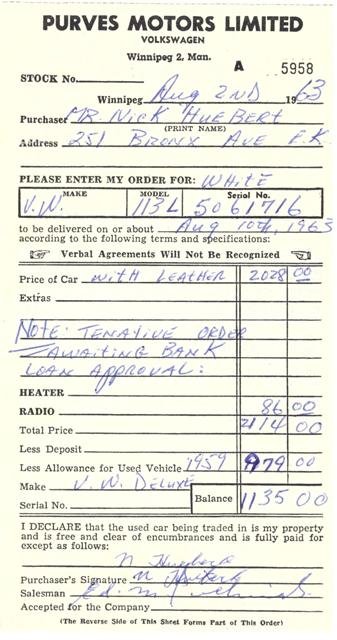 PURVES MOTORS LIMITED
VOLKSWAGEN
Winnipeg 2, Man.
A 5958
STOCK No.
Winnipeg Aug 2ND 1963
Purchaser MR. NICK HUEBERT
(PRINT NAME)
Address 251 BRONX AVE E.K.
PLEASE ENTER MY ORDER FOR: WHITE
MAKE MODEL Serial No.
V.W. 113L 5061716
to be delivered on or about Aug 10th, 1963
according to the following terms and specifications:
Verbal Agreements Will Not Be Recognized
Price of Car WITH LEATHER 2028 00
Extras
NOTE: TENATIVE ORDER
AWAITING BANK
LOAN APPROVAL:
HEATER
RADIO 86 00
Total Price 2114 00
Less Deposit
Less Allowance for Used Vehicle 1959 979 00
Make V.W. DELUXE
Serial No. Balance 1135 00
I DECLARE that the used car being traded in is my property
and is free and clear of encumbrances and is fully paid for
except as follows:
Purchaser's Signature
Salesman Ed.
Accepted for the Company
(The Reverse Side of This Sheet Forms Part of This Order)